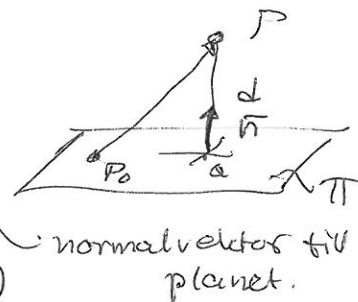 P
n̄
P₀
Q
π
normalvektor till
planet.
)